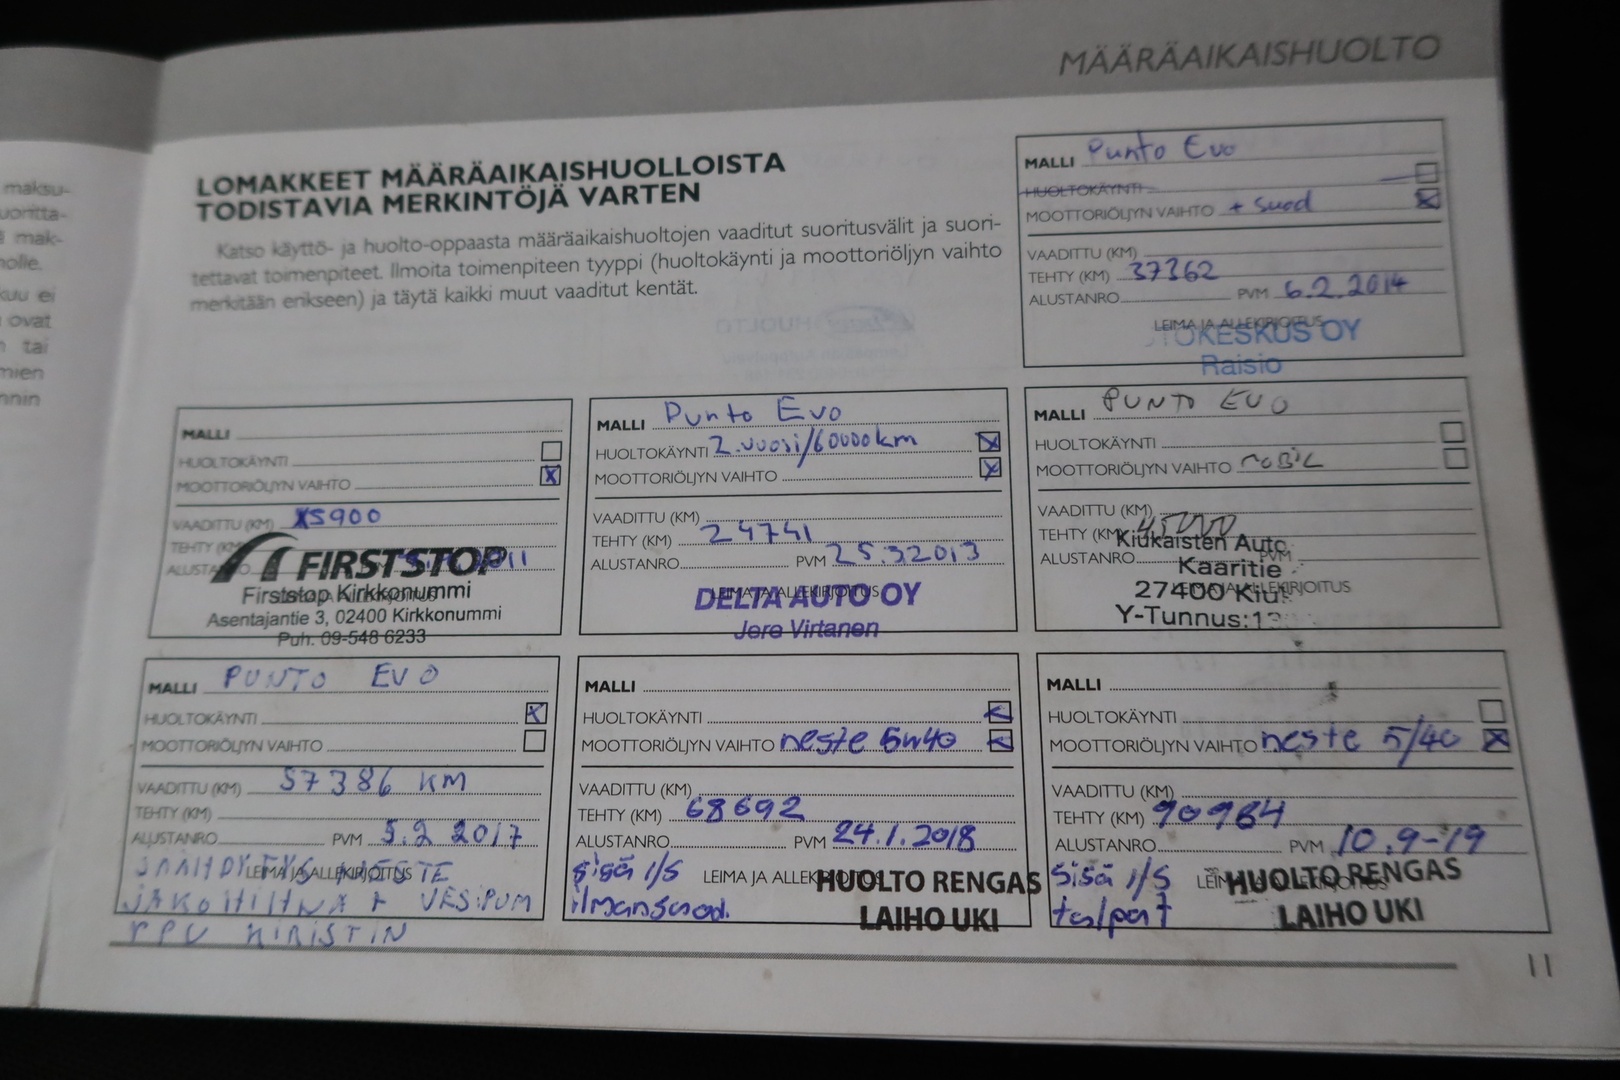 MÄÄRÄAIKAISHUOLTO
maksu-
uoritta-
ä mak-
nolle.
kuu ei
ovat
tai
mien
nnin
LOMAKKEET MÄÄRÄAIKAISHUOLLOISTA
TODISTAVIA MERKINTÖJÄ VARTEN
Katso käyttö- ja huolto-oppaasta määräaikaishuoltojen vaaditut suoritusvälit ja suori-
tettavat toimenpiteet. Ilmoita toimenpiteen tyyppi (huoltokäynti ja moottoriöljyn vaihto
merkitään erikseen) ja täytä kaikki muut vaaditut kentät.
MALLI Punto Evo
HUOLTOKÄYNTI
MOOTTORIÖLJYN VAIHTO + suod
VAADITTU (KM)
TEHTY (KM) 37362
ALUSTANRO PVM 6.2.2014
LEIMA JA ALLEKIRJOITUS
TOKESKUS OY
Raisio
MALLI
HUOLTOKÄYNTI
MOOTTORIÖLJYN VAIHTO X
VAADITTU (KM) 15900
TEHTY (KM)
FIRSTSTOP
Firststop Kirkkonummi
Asentajantie 3, 02400 Kirkkonummi
Puh. 09-548 6233
MALLI Punto Evo
HUOLTOKÄYNTI 2.vuosi/60000km X
MOOTTORIÖLJYN VAIHTO X
VAADITTU (KM)
TEHTY (KM) 24741
ALUSTANRO PVM 25.3.2013
LEIMA JA ALLEKIRJOITUS
DELTA AUTO OY
Jere Virtanen
MALLI PUNTO EVO
HUOLTOKÄYNTI
MOOTTORIÖLJYN VAIHTO
VAADITTU (KM)
TEHTY (KM) 45000
ALUSTANRO PVM
Kiukaisten Auto
Kaaritie
LEIMA JA ALLEKIRJOITUS
27400 Kiu
Y-Tunnus:1
MALLI PUNTO EVO
HUOLTOKÄYNTI X
MOOTTORIÖLJYN VAIHTO
VAADITTU (KM) 57386 KM
TEHTY (KM)
ALUSTANRO PVM 5.2 2017
LEIMA JA ALLEKIRJOITUS
JÄÄHDYTYS NESTE
JAKOHIHNA + VESIPUM
KIRISTIN
MALLI
HUOLTOKÄYNTI
MOOTTORIÖLJYN VAIHTO neste 5w40
VAADITTU (KM)
TEHTY (KM) 68692
ALUSTANRO PVM 24.1.2018
sisä i/s LEIMA JA ALLEKIRJOITUS
ilmansuod.
HUOLTO RENGAS
LAIHO UKI
MALLI
HUOLTOKÄYNTI
MOOTTORIÖLJYN VAIHTO neste 5/40 X
VAADITTU (KM)
TEHTY (KM) 90984
ALUSTANRO PVM 10.9-19
sisä i/s
HUOLTO RENGAS
LAIHO UKI
11